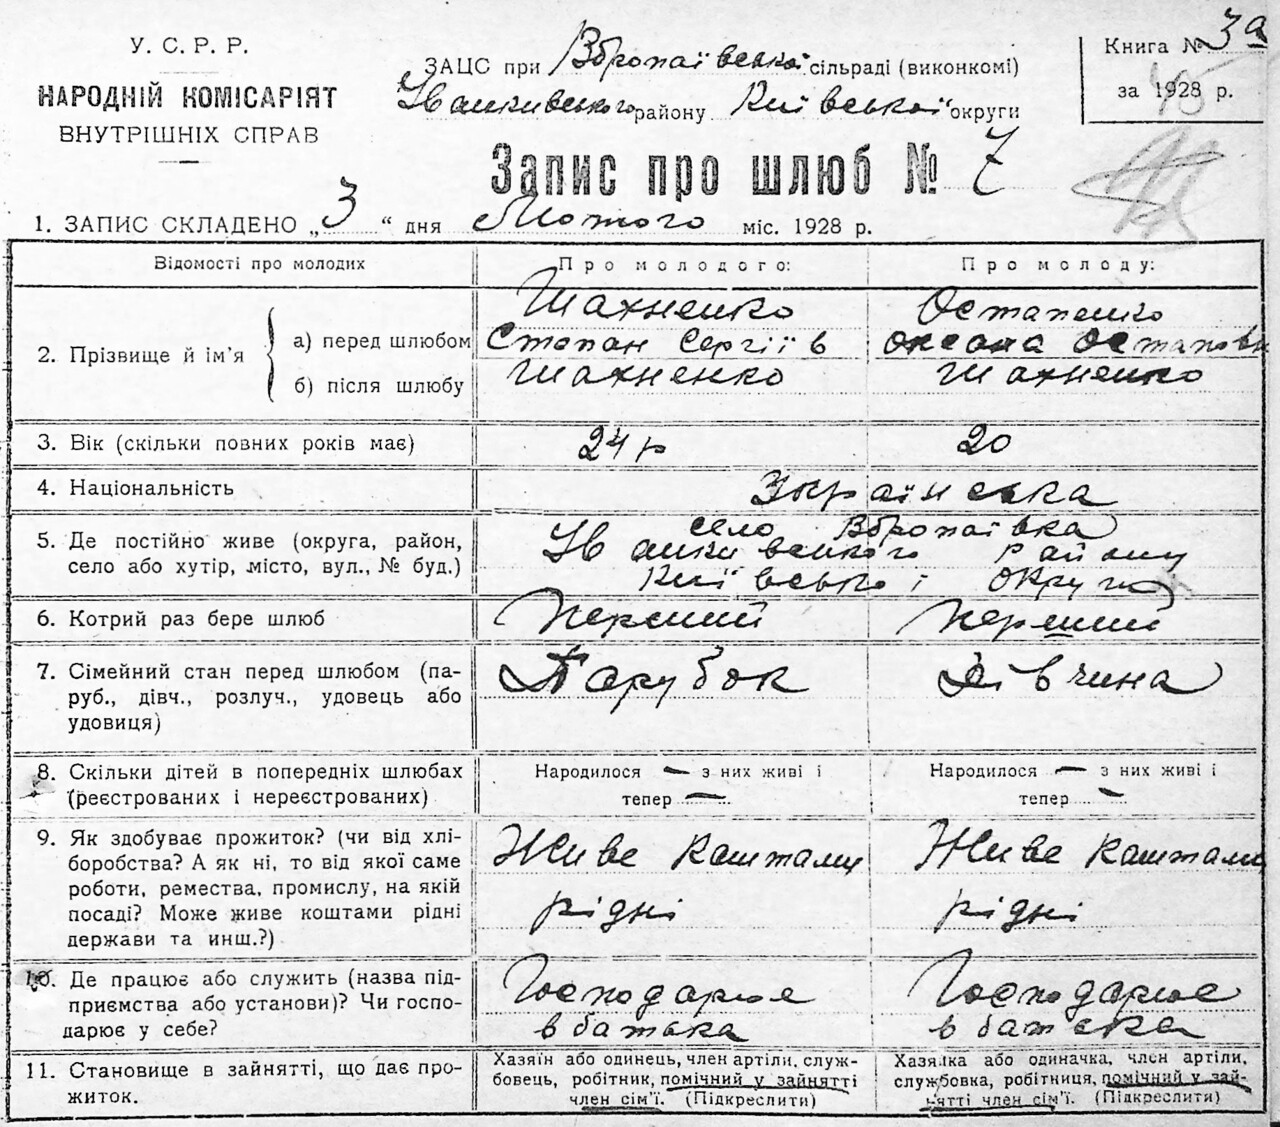 У. С. Р. Р.
НАРОДНІЙ КОМІСАРІЯТ
ВНУТРІШНІХ СПРАВ
ЗАЦС при Вбропаївської сільраді (виконкомі)
Іванківського району Київської округи
Книга № 3а
за 1928 р.
Запис про шлюб № 7
1. ЗАПИС СКЛАДЕНО „3“ дня Лютого міс. 1928 р.
Відомості про молодих
Про молодого:
Про молоду:
2. Прізвище й ім'я
а) перед шлюбом
б) після шлюбу
Шахненко
Степан Сергіїв
Шахненко
Остапенко
Оксана Остапови
Шахненко
3. Вік (скільки повних років має)
24 р
20
4. Національність
Українська
5. Де постійно живе (округа, район,
село або хутір, місто, вул., № буд.)
село Вбропаївка
Іванкивського району
Київської округи
6. Котрий раз бере шлюб
Перший
Перший
7. Сімейний стан перед шлюбом (па-
руб., дівч., розлуч., удовець або
удовиця)
Парубок
Дівчина
8. Скільки дітей в попередніх шлюбах
(реєстрованих і нереєстрованих)
Народилося — з них живі і
тепер —
Народилося — з них живі і
тепер —
9. Як здобуває прожиток? (чи від хлі-
боробства? А як ні, то від якої саме
роботи, ремества, промислу, на якій
посаді? Може живе коштами рідні
держави та инш.?)
Живе Каштами
рідні
Живе Каштами
рідні
10. Де працює або служить (назва під-
приємства або установи)? Чи госпо-
дарює у себе?
Господарює
в батька
Господарює
в батька
11. Становище в зайнятті, що дає про-
житок.
Хазяїн або одинець, член артіли, служ-
бовець, робітник, помічний у зайнятті
член сім'ї. (Підкреслити)
Хазяїка або одиначка, член артіли,
службовка, робітниця, помічний у зай-
нятті член сім'ї. (Підкреслити)